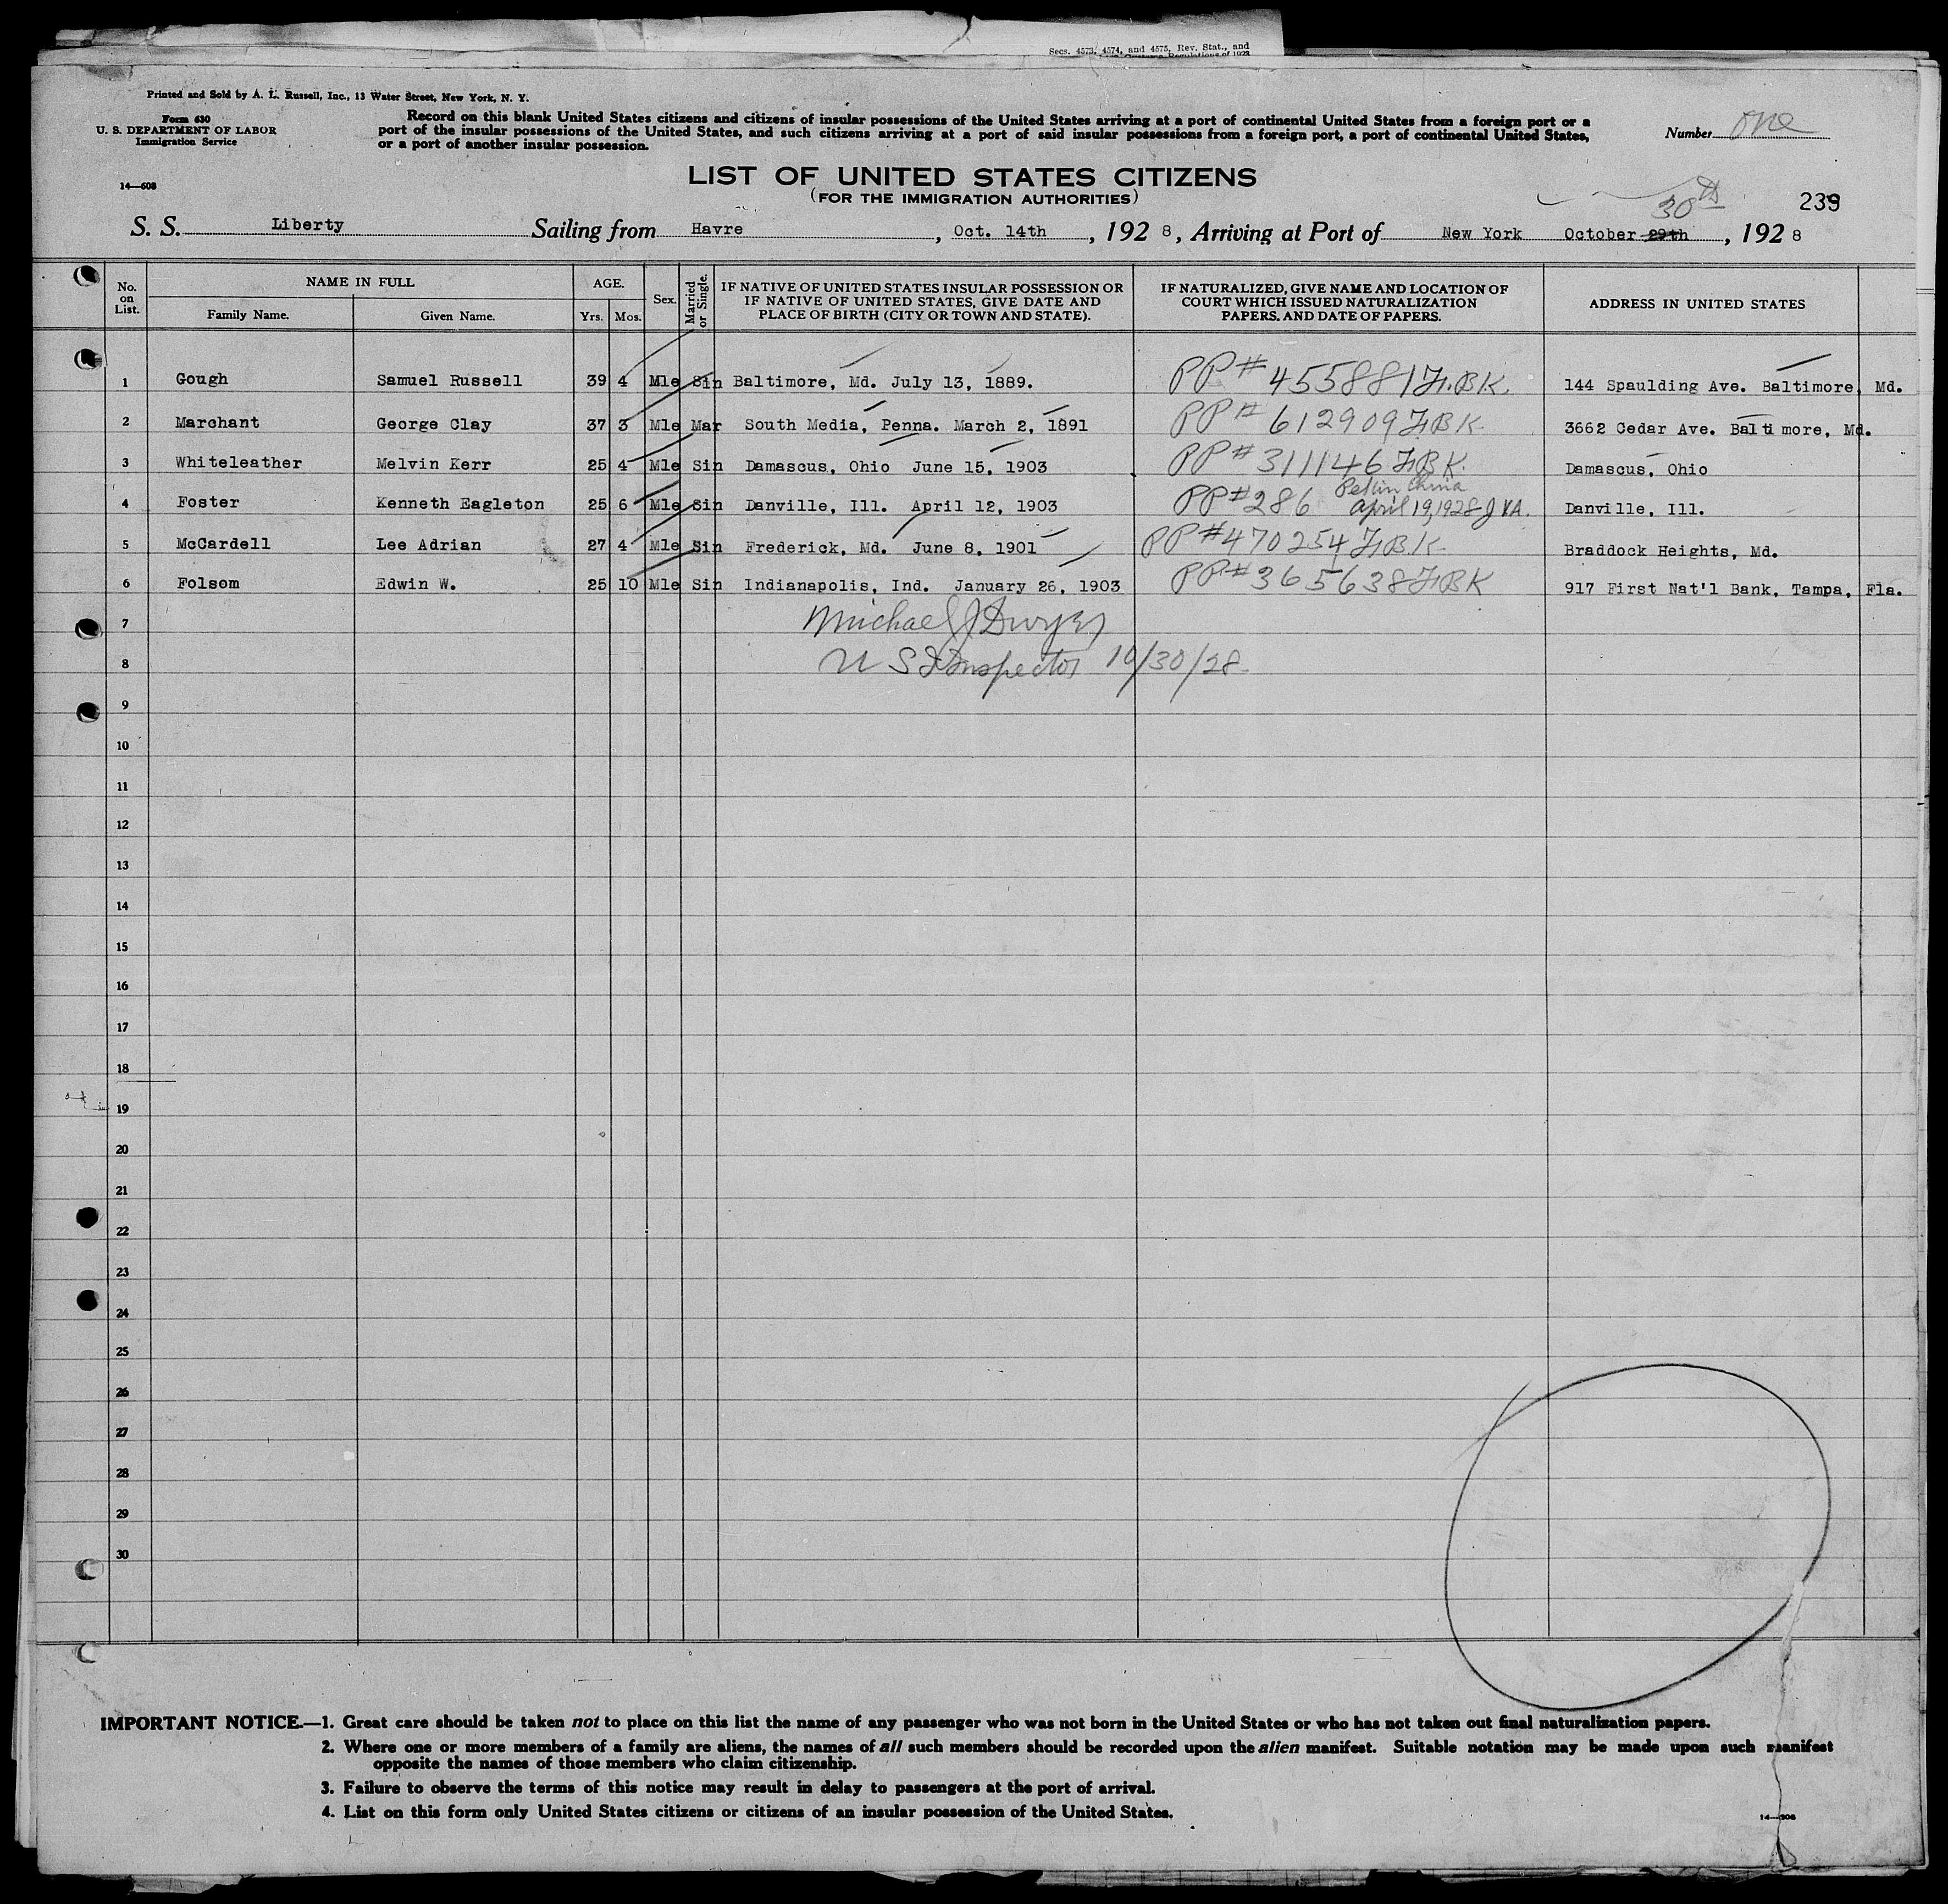 Secs. 4573, 4574, and 4575, Rev. Stat., and
Printed and Sold by A. L. Russell, Inc., 13 Water Street, New York, N. Y.
Form 630
U. S. DEPARTMENT OF LABOR
Immigration Service
14—608
Record on this blank United States citizens and citizens of insular possessions of the United States arriving at a port of continental United States from a foreign port or a
port of the insular possessions of the United States, and such citizens arriving at a port of said insular possessions from a foreign port, a port of continental United States,
or a port of another insular possession.
Number one
LIST OF UNITED STATES CITIZENS
(FOR THE IMMIGRATION AUTHORITIES)
30th
239
S. S. Liberty Sailing from Havre, Oct. 14th, 1928, Arriving at Port of New York October 29th, 1928
No. on List. NAME IN FULL Family Name. Given Name. AGE. Yrs. Mos. Sex. Married or Single. IF NATIVE OF UNITED STATES INSULAR POSSESSION OR IF NATIVE OF UNITED STATES, GIVE DATE AND PLACE OF BIRTH (CITY OR TOWN AND STATE). IF NATURALIZED, GIVE NAME AND LOCATION OF COURT WHICH ISSUED NATURALIZATION PAPERS, AND DATE OF PAPERS. ADDRESS IN UNITED STATES
1 Gough Samuel Russell 39 4 Mle Sin Baltimore, Md. July 13, 1889. PP# 455881 F.BK. 144 Spaulding Ave. Baltimore, Md.
2 Marchant George Clay 37 3 Mle Mar South Media, Penna. March 2, 1891 PP# 612909 FBK 3662 Cedar Ave. Baltimore, Md.
3 Whiteleather Melvin Kerr 25 4 Mle Sin Damascus, Ohio June 15, 1903 PP# 311146 FBK. Damascus, Ohio
Pekin China
4 Foster Kenneth Eagleton 25 6 Mle Sin Danville, Ill. April 12, 1903 PP# 286 April 19, 1928 JVA. Danville, Ill.
5 McCardell Lee Adrian 27 4 Mle Sin Frederick, Md. June 8, 1901 PP# 470254 F.BK Braddock Heights, Md.
6 Folsom Edwin W. 25 10 Mle Sin Indianapolis, Ind. January 26, 1903 PP# 365638 FBK 917 First Nat'l Bank, Tampa, Fla.
7 Michael J Dwyer
8 U S I Inspector 10/30/28
9
10
11
12
13
14
15
16
17
18
19
20
21
22
23
24
25
26
27
28
29
30
IMPORTANT NOTICE.—1. Great care should be taken not to place on this list the name of any passenger who was not born in the United States or who has not taken out final naturalization papers.
2. Where one or more members of a family are aliens, the names of all such members should be recorded upon the alien manifest. Suitable notation may be made upon such manifest
opposite the names of those members who claim citizenship.
3. Failure to observe the terms of this notice may result in delay to passengers at the port of arrival.
4. List on this form only United States citizens or citizens of an insular possession of the United States.
14—608